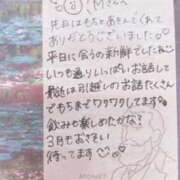 Mさん
本日はもちとあきんでくれて
ありがとうございました
平日に会うの新鮮でしたね
いつも通りいっぱいお話して
最近は引越しのお話たくさん
でもうまでワクワクしてます
飲みも楽しめたかな?
3月もおさそい
待ってます